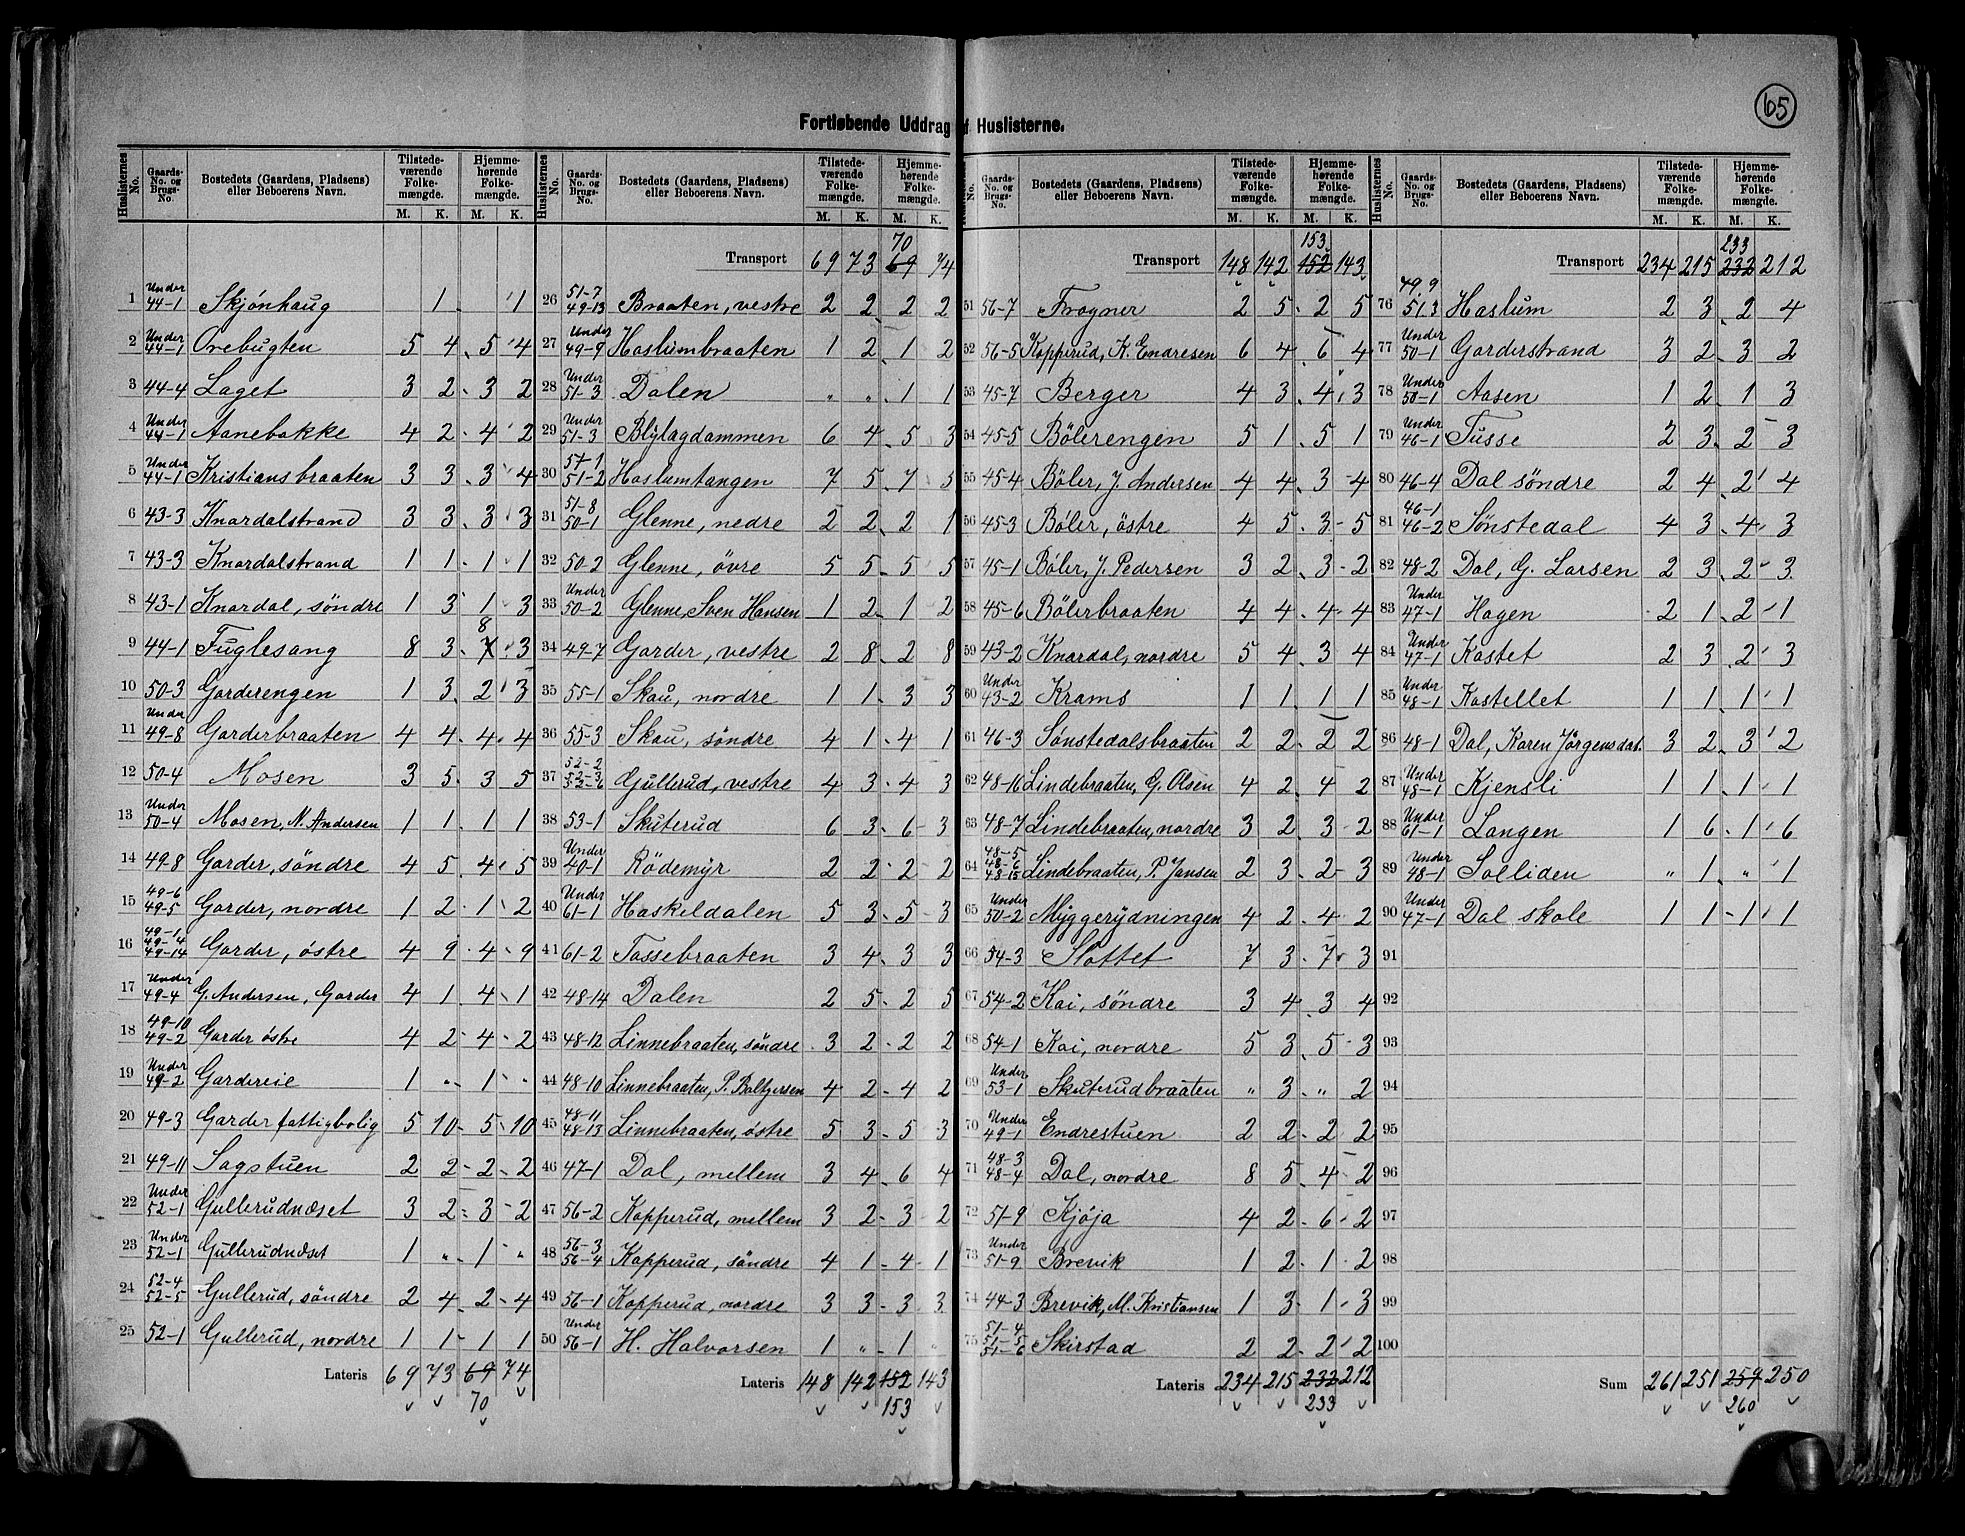 65
Fortløbende Uddrag af Huslisterne.
Huslisternes No. Gaards-No. og Brugs-No. Bostedets (Gaardens, Pladsens) eller Beboerens Navn. Tilstedeværende Folkemængde. M. K. Hjemmehørende Folkemængde. M. K.
1 Under 44-1 Skjönhaug 1 1
2 Under 44-1 Orebugten 5 4 5 4
3 44-4 Laget 3 2 3 2
4 Under 44-1 Aanebakke 4 2 4 2
5 Under 44-1 Kristiansbraaten 3 3 3 4
6 43-3 Knardalstrand 3 3 3 3
7 43-3 Knardalstrand 1 1 1 1
8 43-1 Knardal, söndre 1 3 1 3
9 44-1 Fuglesang 8 3 7 8 3
10 50-3 Garderengen 1 3 2 3
11 Under 49-8 Garderbraaten 4 4 4 4
12 50-4 Mosen 3 5 3 5
13 Under 50-4 Mosen, N. Andersen 1 1 1 1
14 49-8 Garder, söndre 4 5 4 5
15 49-6 49-5 Garder, nordre 1 2 1 2
16 49-1 49-4 49-14 Garder, östre 4 9 4 9
17 Under 49-4 G. Andersen, Garder 4 1 4 1
18 49-10 49-2 Garder östre 4 2 4 2
19 Under 49-2 Gardereie 1 " 1 "
20 49-3 Garder fattigbolig 5 10 5 10
21 49-11 Sagstuen 2 2 2 2
22 Under 52-1 Gullerudnæset 3 2 3 2
23 Under 52-1 Gullerudnæset 1 " 1 "
24 52-4 52-5 Gullerud, söndre 2 4 2 4
25 52-1 Gullerud, nordre 1 1 1 1
Lateris 69 73 69 74
70
Huslisternes No. Gaards-No. og Brugs-No. Bostedets (Gaardens, Pladsens) eller Beboerens Navn. Tilstedeværende Folkemængde. M. K. Hjemmehørende Folkemængde. M. K.
70
Transport 69 73 69 74
26 51-7 49-13 Braaten, vestre 2 2 2 2
27 Under 49-9 Haslumbraaten 1 2 1 2
28 Under 51-3 Dalen " " 1 1
29 Under 51-3 Blylagdammen 6 4 5 3
30 51-1 51-2 Haslumtangen 7 5 7 5
31 51-8 50-1 Glenne, nedre 2 2 2 1
32 50-2 Glenne, övre 5 5 5 5
33 Under 50-2 Glenne, Sven Hansen 1 2 1 2
34 49-7 Garder, vestre 2 8 2 8
35 55-1 Skau, nordre 1 1 3 3
36 55-3 Skau, söndre 4 1 4 1
37 52-2 52-3 52-6 Gullerud, vestre 4 3 4 3
38 53-1 Skuterud 6 3 6 3
39 Under 40-1 Rödemyr 2 2 2 2
40 Under 61-1 Haskeldalen 5 3 5 3
41 61-2 Tassebraaten 3 4 3 3
42 48-14 Dalen 2 5 2 5
43 48-12 Linnebraaten, söndre 3 2 2 2
44 48-10 Linnebraaten, P. Baltzersen 4 2 4 2
45 48-11 48-13 Linnebraaten, östre 5 3 5 3
46 47-1 Dal, mellem 3 4 6 4
47 56-2 Kopperud, mellem 3 2 3 2
48 56-3 56-4 Kopperud, söndre 4 1 4 1
49 56-1 Kopperud, nordre 3 3 3 3
50 Under 56-1 H. Halvorsen 1 " 1 "
Lateris 148 142 152 143
153
Gaards-No. og Brugs-No. Bostedets (Gaardens, Pladsens) eller Beboerens Navn. Tilstedeværende Folkemængde. M. K. Hjemmehørende Folkemængde. M. K.
153
Transport 148 142 152 143
51 56-7 Frogner 2 5 2 5
52 56-5 Kopperud, K. Endresen 6 4 6 4
53 45-7 Berger 4 3 4 3
54 45-5 Bölerengen 5 1 5 1
55 45-4 Böler, J. Andersen 4 4 3 4
56 45-3 Böler, östre 4 5 3 5
57 45-1 Böler, J. Pedersen 3 2 3 2
58 45-6 Bölerbraaten 4 4 4 4
59 43-2 Knardal, nordre 5 4 3 4
60 Under 43-2 Krams 1 1 1 1
61 46-3 Sönstedalsbraaten 2 2 2 2
62 48-16 Lindebraaten, G. Olsen 4 2 4 2
63 48-7 Lindebraaten, nordre 3 2 3 2
64 48-5 48-6 48-15 Lindebraaten, P. Jansen 2 3 2 3
65 Under 50-2 Myggerydningen 4 2 4 2
66 54-3 Slottet 7 3 7 3
67 54-2 Kai, söndre 3 4 3 4
68 54-1 Kai, nordre 5 3 5 3
69 Under 53-1 Skuterudbraaten " 3 " 2
70 Under 49-1 Endrestuen 2 2 2 2
71 48-3 48-4 Dal, nordre 8 5 4 2
72 51-9 Kjöja 4 2 6 2
73 Under 51-9 Brevik 1 2 1 2
74 44-3 Brevik, M. Kristiansen 1 3 1 3
75 51-4 51-5 51-6 Skirstad 2 2 2 2
Lateris 234 215 232 212
233
Huslisternes No. Gaards-No. og Brugs-No. Bostedets (Gaardens, Pladsens) eller Beboerens Navn. Tilstedeværende Folkemængde. M. K. Hjemmehørende Folkemængde. M. K.
233
Transport 234 215 232 212
76 49.9 51.3 Haslum 2 3 2 4
77 Under 50-1 Garderstrand 3 2 3 2
78 Under 50-1 Aasen 1 2 1 3
79 Under 46-1 Tusse 2 3 2 3
80 46-4 Dal söndre 2 4 2 4
81 46-1 46-2 Sönstedal 4 3 4 3
82 48-2 Dal, G. Larsen 2 3 2 3
83 Under 47-1 Hagen 2 1 2 1
84 Under 47-1 Kastet 2 3 2 3
85 Under 48-1 Kastellet 1 1 1 1
86 48-1 Dal, Karen Jörgensdat. 3 2 3 2
87 Under 48-1 Kjensli 1 1 1 1
88 Under 61-1 Langen 1 6 1 6
89 Under 48-1 Solliden " 1 " 1
90 Under 47-1 Dal skole 1 1 1 1
91
92
93
94
95
96
97
98
99
100
Sum 261 251 259 250
260